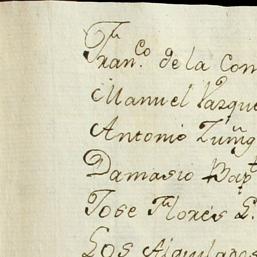 Fran.co de la Com
Manuel Vasque
Antonio Zuñig
Damasio Bapt
Jose Flores G.
Los Aguilares